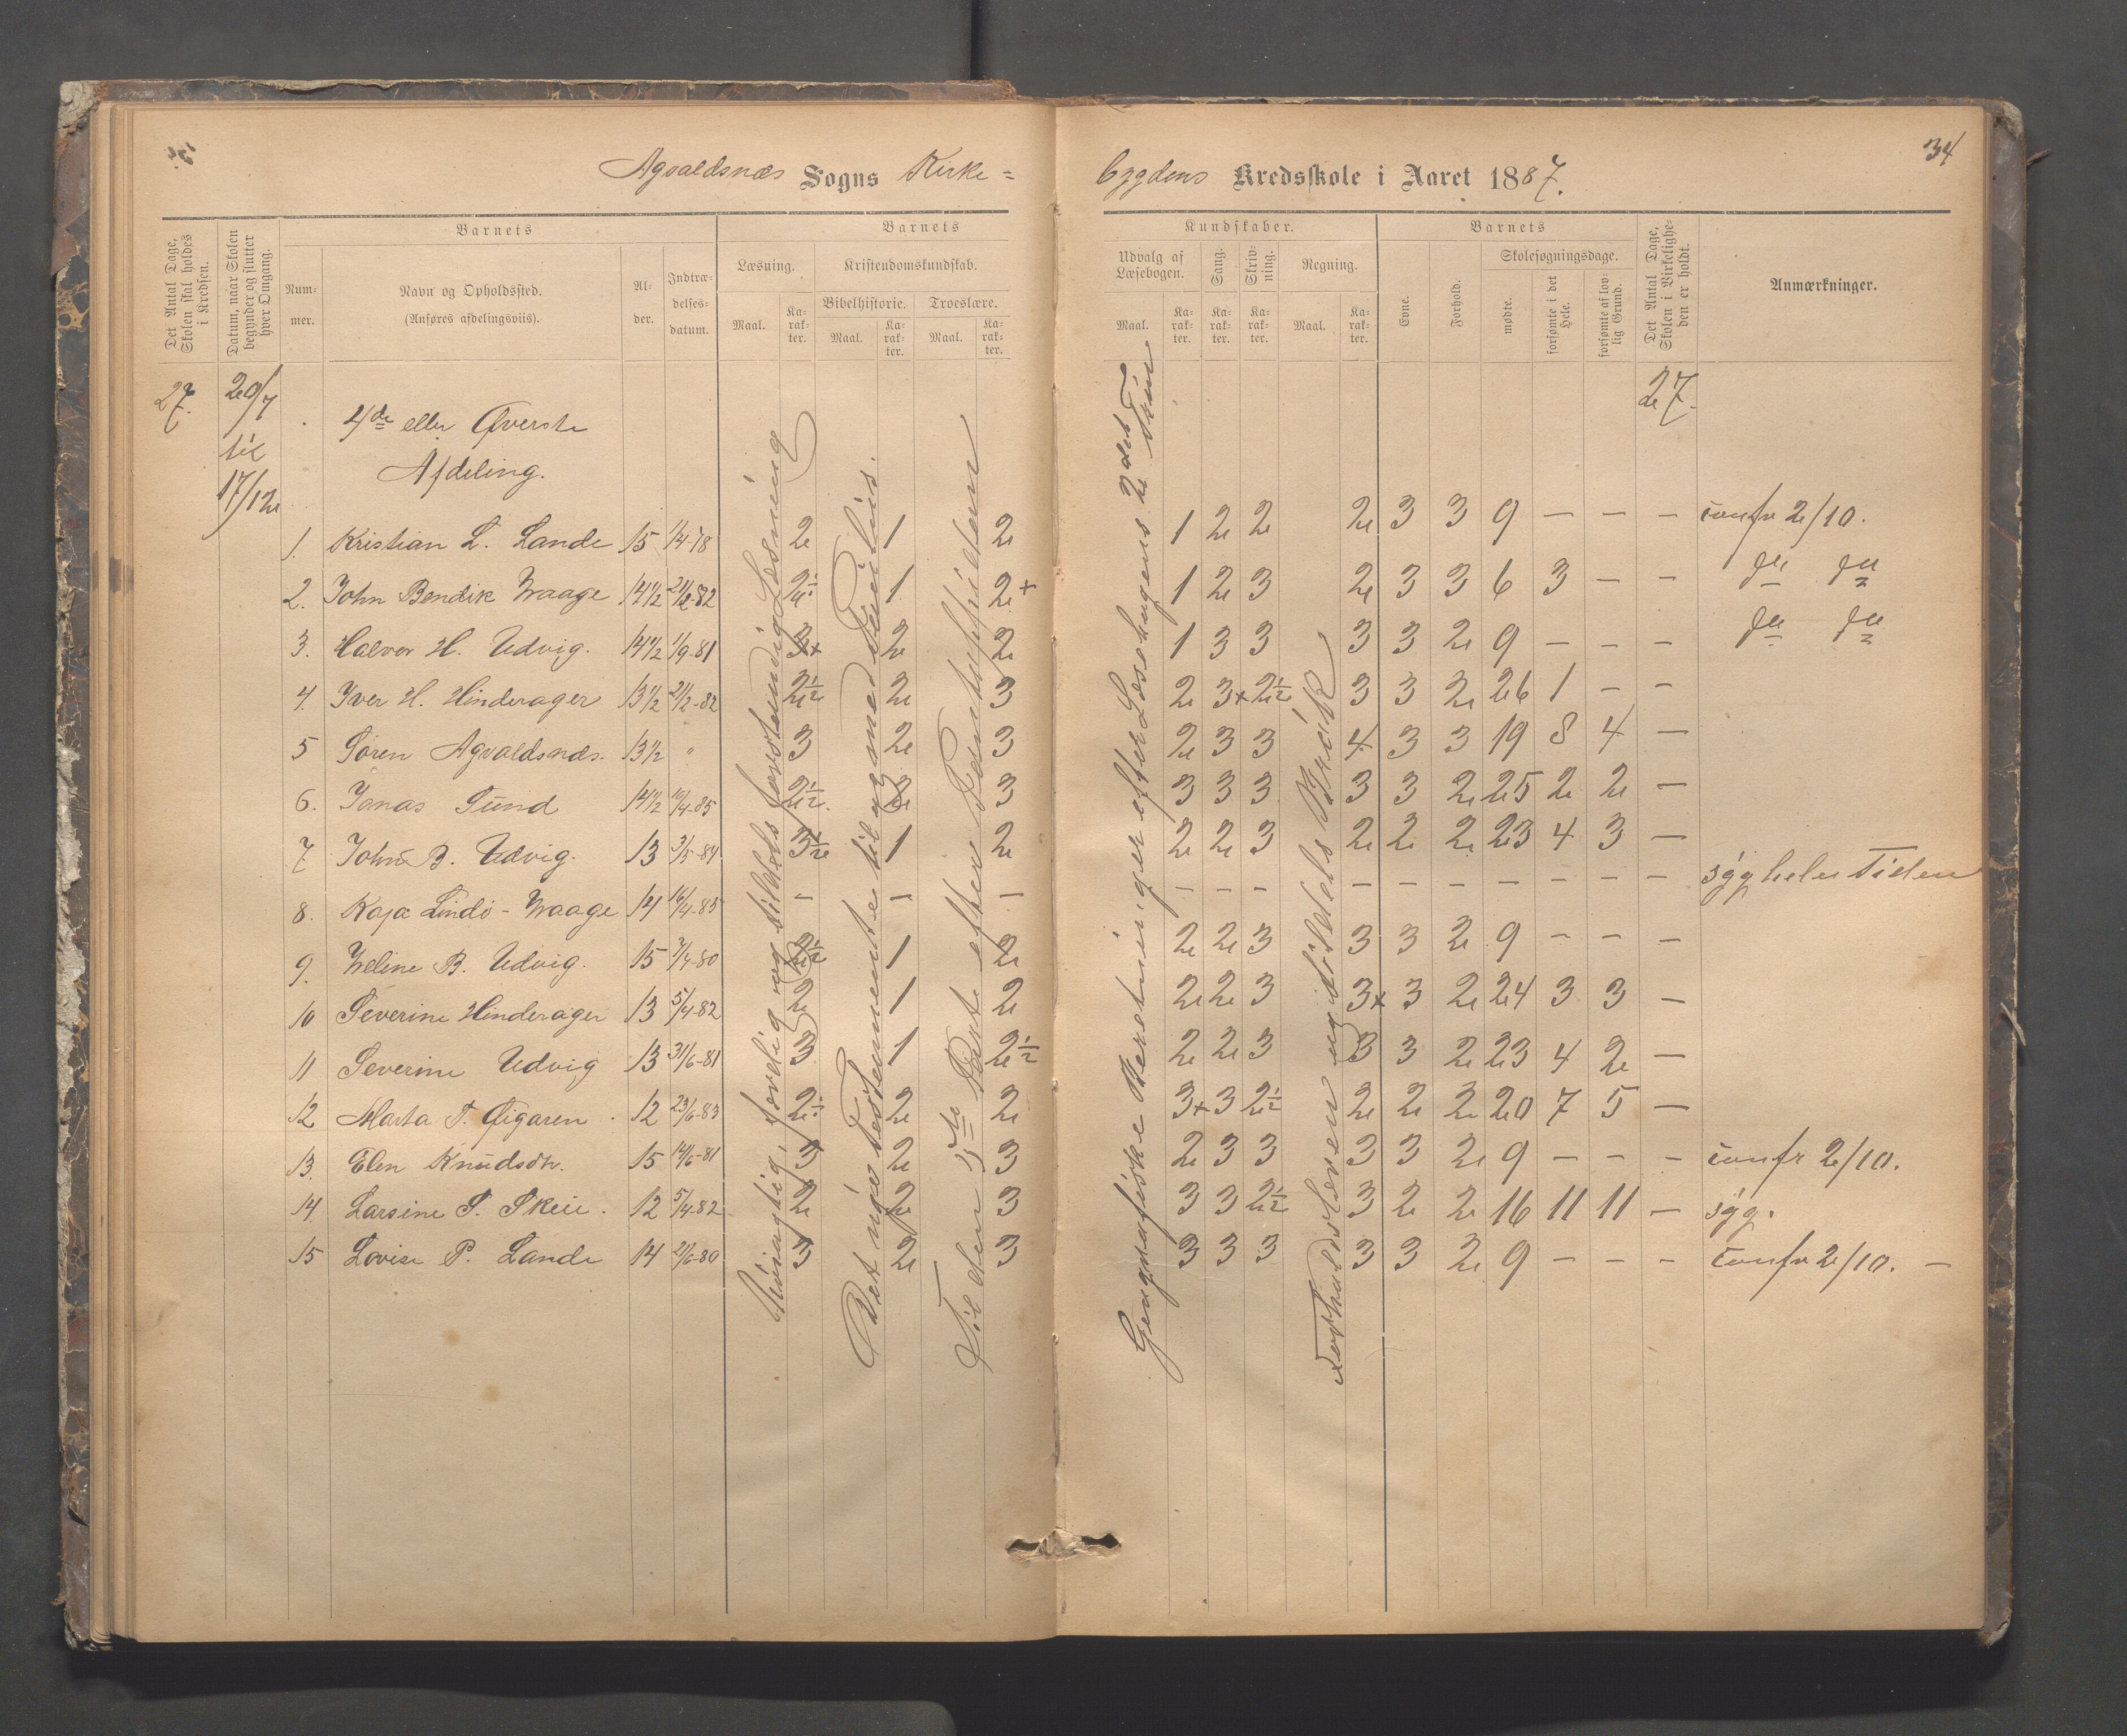 34
Agvaldsnæs Sogns Kirke=
bygdens Kredsskole i Aaret 1887.
Det Antal Dage, Skolen skal holdes i Kredsen.
Datum, naar Skolen begynder og slutter hver Omgang.
Barnets
Num-mer.
Navn og Opholdssted.
(Anføres afdelingsviis).
Al-der.
Indtræ-delses-datum.
Barnets
Læsning.
Maal.
Ka-rak-ter.
Kristendomskundskab.
Bibelhistorie.
Maal.
Ka-rak-ter.
Troeslære.
Maal.
Ka-rak-ter.
Kundskaber.
Udvalg af Læsebogen.
Maal.
Ka-rak-ter.
Sang.
Ka-rak-ter.
Skriv-ning.
Ka-rak-ter.
Regning.
Maal.
Ka-rak-ter.
Barnets
Evne.
Forhold.
Skolesøgningsdage.
mødte.
forsømte i det Hele.
forsømte af lov-lig Grund.
Det Antal Dage, Skolen i Virkelighe-den er holdt.
Anmærkninger.
27.
20/7
til
17/12
4de eller Øverste
Afdeling.
27.
1. Kristian L. Lande 15 1/4-78 2 1 2 1 2 2 2 3 3 9 – – – confr 2/10.
2. John Bendik Waage 14 1/2 21/2-82 2 1/2 1 2+ 1 2 3 2 3 3 6 3 – – do do
3. Halvor H. Udvig. 14 1/2 1/9-81 3+ 2 2 1 3 3 3 3 2 9 – – – do do
4. Iver H. Hinderager 13 1/2 21/2-82 2 1/2 2 3 2 3+ 2 1/2 3 3 2 26 1 – –
5 Sören Agvaldsnæs. 13 1/2 " 3 2 3 2 3 3 4 3 3 19 8 4 –
6. Jonas Sund 14 1/2 10/4-85 2 1/2 2 3 3 3 3 3 3 2 25 2 2 –
7 John B. Udvig. 13 3/5-84 3 1/2 1 2 2 2 3 2 2 2 23 4 3 –
8. Kaja Lindö - Waage 14 16/4-85 – – – – – – – – – – – – – syg hele Tiden
9. Weline B. Udvig. 15 7/4-80 2 1/2 1 2 2 2 3 3 3 2 9 – – –
10 Severine Hinderager 13 5/4-82 2 1 2 2 2 3 3+ 3 2 24 3 3 –
11 Severine Udvig 13 31/6-81 3 1 2 1/2 2 2 3 3 3 2 23 4 2 –
12 Marta T. Øigaren. 12 23/6-83 2 1/2 2 2 3+ 3 2 1/2 2 2 2 20 7 5 –
13. Elen Knudsdtr. 15 14/6-81 3 2 3 2 3 3 3 3 2 9 – – – confr 2/10.
14. Larsine S. Skeie. 12 5/4-82 2 2 3 3 3 2 1/2 3 2 2 16 11 11 – syg.
15 Lovise P. Lande 14 2/6-80 3 2 3 3 3 3 3 3 2 9 – – – confr 2/10. –
Nöiagtig, færdig og tildels forstændig Læsning
Det nye Testamente til og med Pauli
Til den 3die Part efter Pontoppidan
Geografiske Beretninger efter Læsebogens 2det Trin
Forholdslæren og tildels Brök